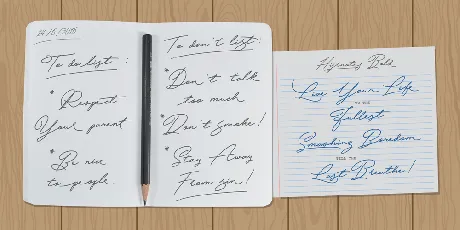 To do list :
* Respect
Your parent
* Be nice
to people.
To don't list :
* Don't talk
too much
* Don't Smoke!
* Stay Away
From gin!
Hypnotes Bold
Live Your Life
TO THE
Fullest
Smashing Boredom
TILL THE
Last Breathe!